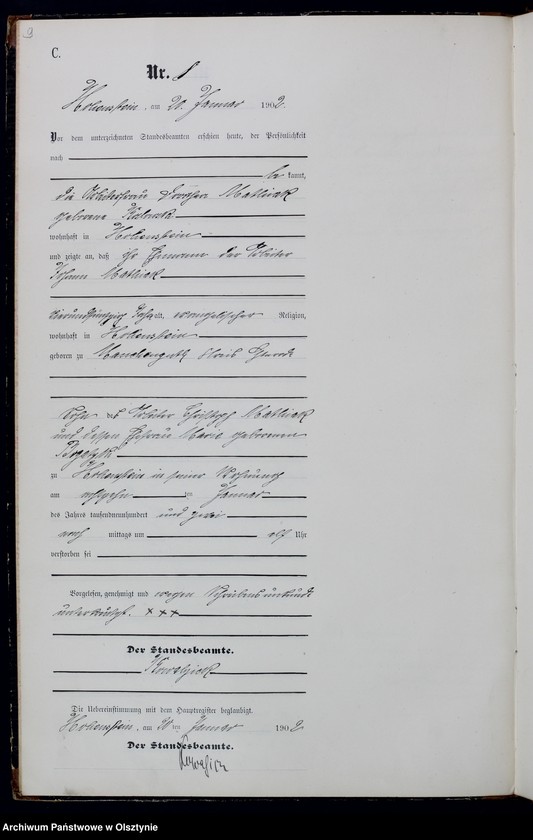 9
C.
Nr. 8
Hohenstein, am 20. Januar 1902.
Vor dem unterzeichneten Standesbeamten erschien heute, der Persönlichkeit
nach
be kannt,
die Arbeiterfrau Mathiak
geborene
wohnhaft in Hohenstein
und zeigte an, daß ihr Ehemann der Arbeiter
Johann Mathiak
vierundfünfzig Jahre alt, evangelischer Religion,
wohnhaft in Hohenstein
geboren zu Manchenguth Kreis Osterode
Sohn des Arbeiter Christoph Mathiak
und dessen Ehefrau Marie geborenen
zu Hohenstein in seiner Wohnung
am achtzehn ten Januar
des Jahres tausendneunhundert und zwei
nach mittags um elf Uhr
verstorben sei
Vorgelesen, genehmigt und wegen Schreibensunkunde
unterkreuzt. xxx
Der Standesbeamte.
Kowalzick
Die Uebereinstimmung mit dem Hauptregister beglaubigt.
Hohenstein, am 20 ten Januar 1902
Der Standesbeamte.
Kowalzick
Archiwum Państwowe w Olsztynie